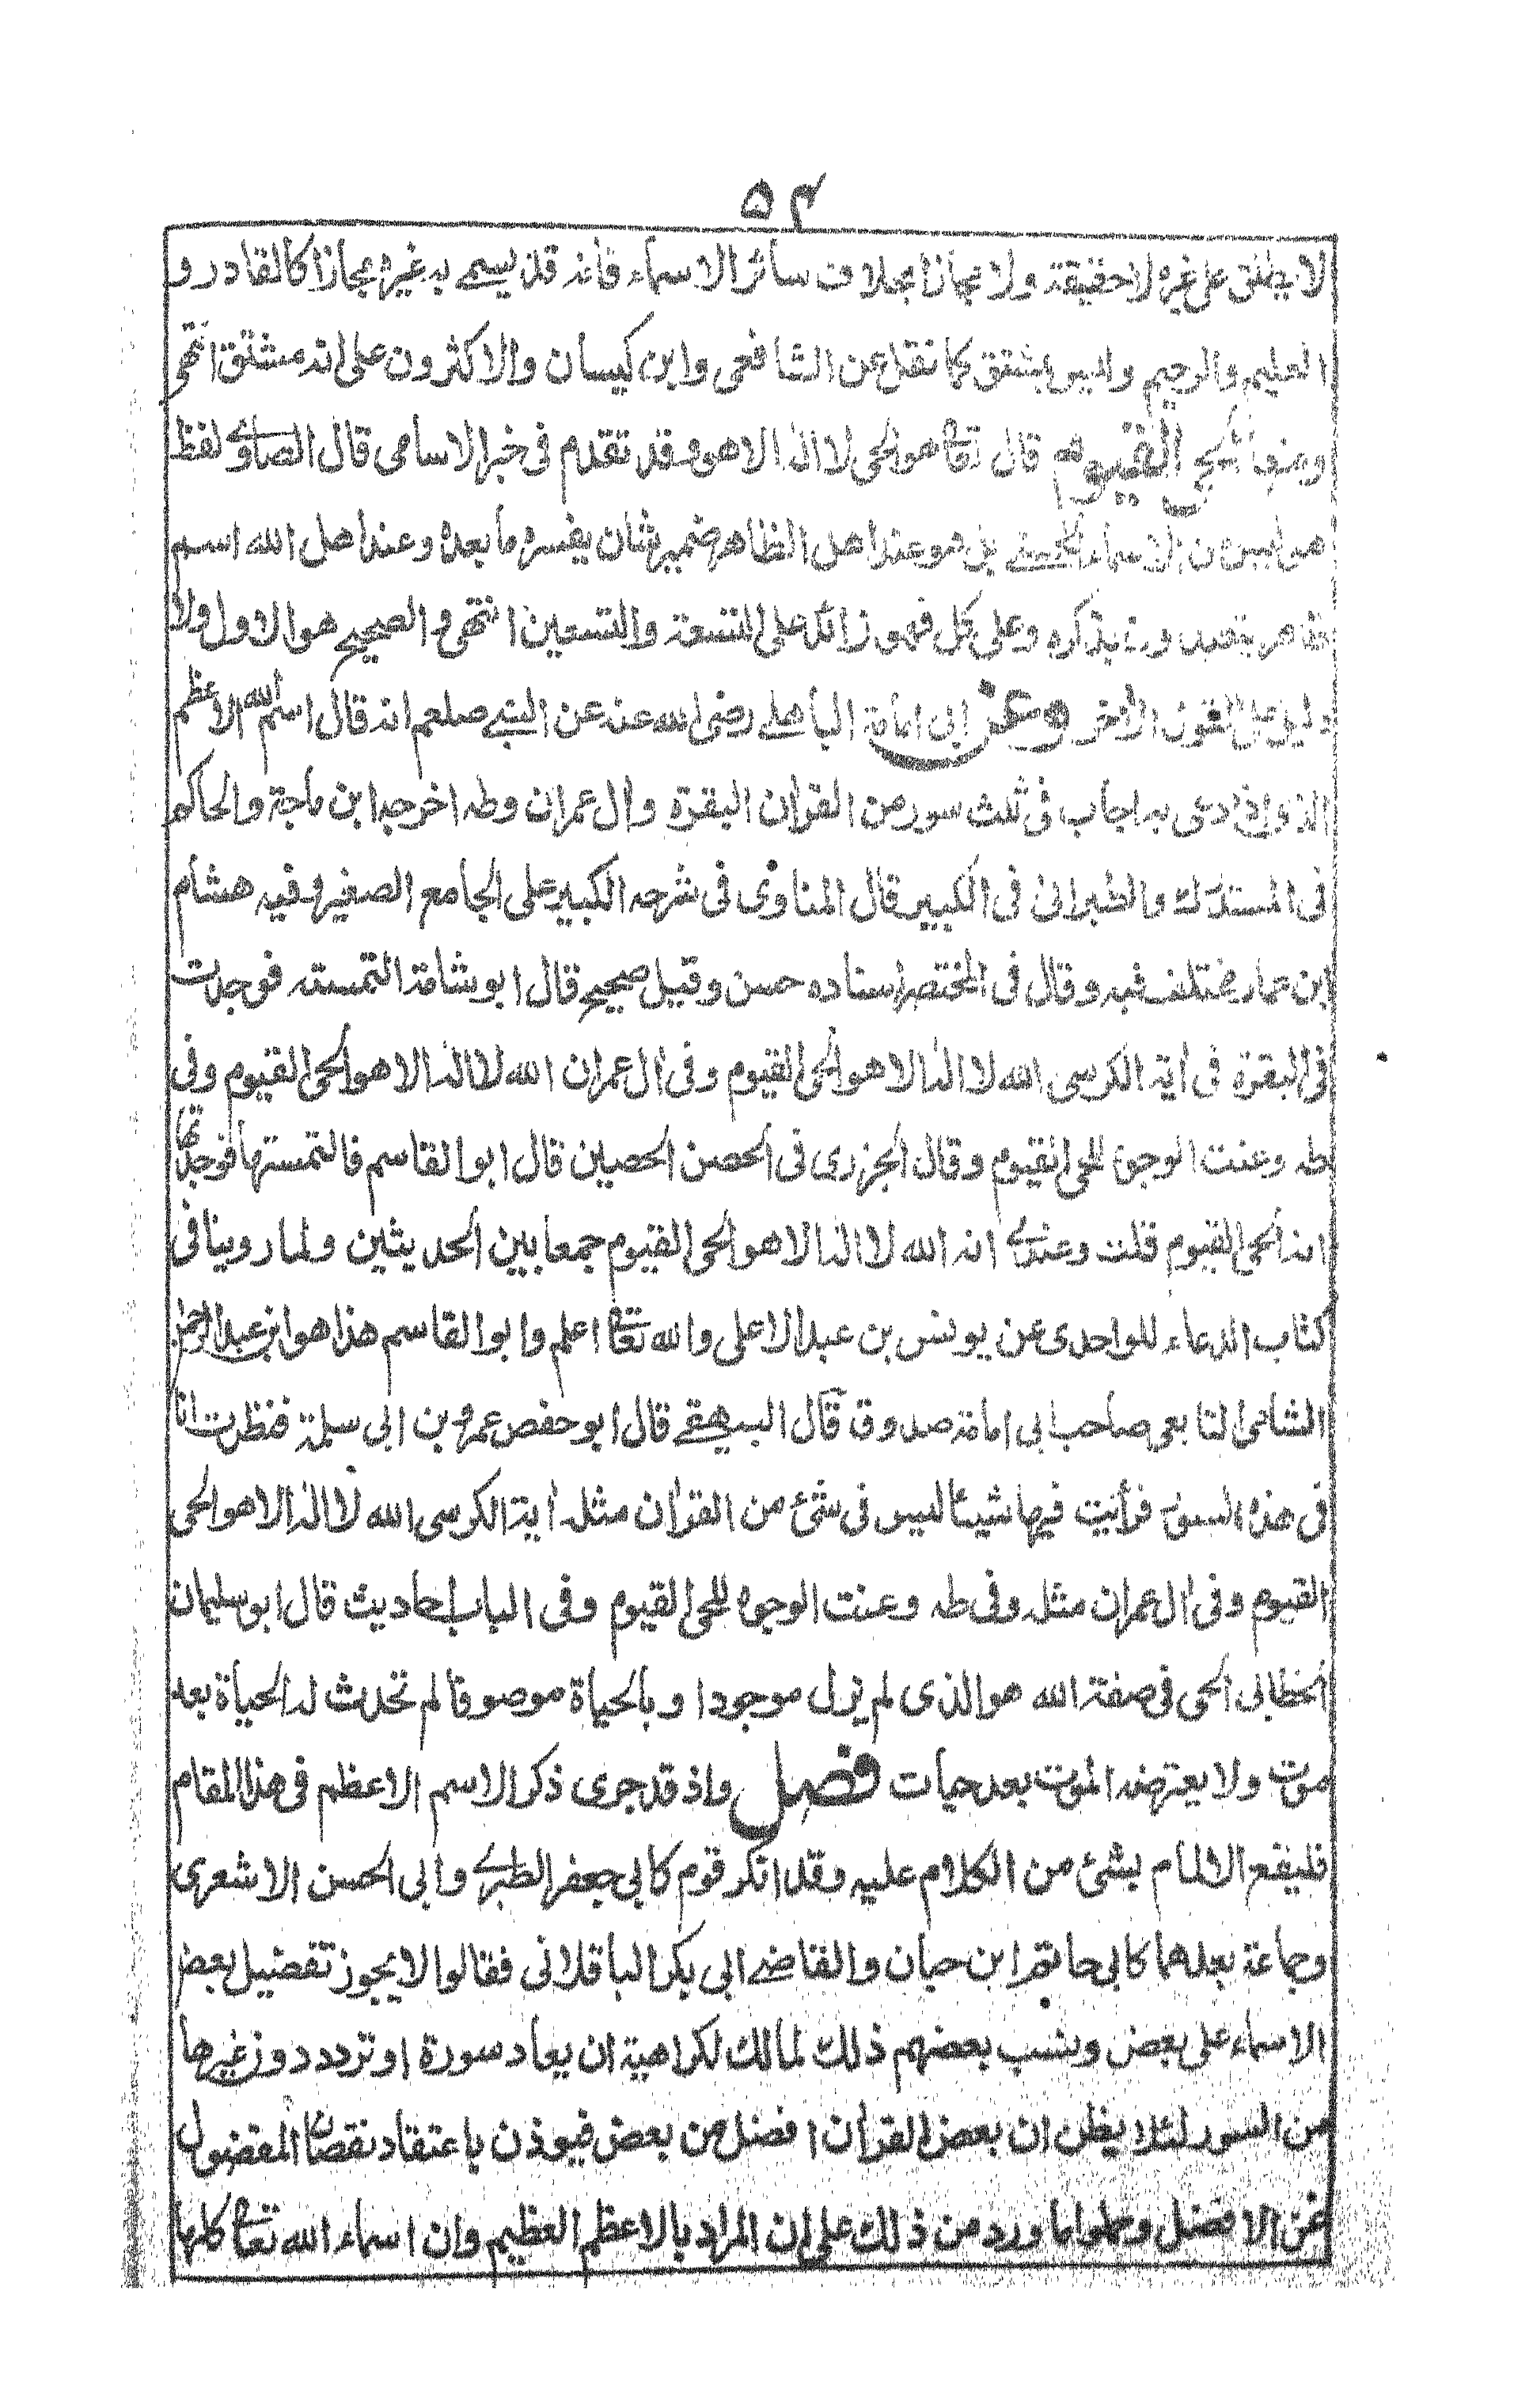 ٥٤
لا يطلق على غيره لا حقيقة ولا مجازا بخلاف سائر الاسماء فانه قد يسمى به غيره مجازا كالقادر و
العليم والرحيم وليس بمشتق كما نقل عن الشافعى وابن كيسان والاكثرون على انه مشتق انتهى
ومنها الحى القيوم قال تعالى هو الحى لا اله الا هو وقد تقدم فى خبر الاسامى قال الصاوى لفظ
هو ليس من الاسماء الحسنى بل هو عند اهل الظاهر ضمير شان يفسره ما بعده وعند اهل الله اسم
ظاهر يتعبدون بذكره وعلى كل فهو زائد على التسعة والتسعين انتهى والصحيح هو الاول ولا
دليل على القول الاخر وعن ابى امامة الباهلى رضى الله عنه عن النبى صلعم انه قال اسم الله الاعظم
الذى اذا دعى به اجاب فى ثلث سور من القران البقرة وال عمران وطه اخرجه ابن ماجة والحاكم
فى المستدرك والطبرانى فى الكبير قال المناوى فى شرحه الكبير على الجامع الصغير وفيه هشام
ابن عمار مختلف فيه وقال فى المختصر اسناده حسن وقيل صحيح قال ابو شامة التمسته فوجدت
فى البقرة فى اية الكرسى الله لا اله الا هو الحى القيوم وفى ال عمران الله لا اله الا هو الحى القيوم وفى
طه وعنت الوجوه للحى القيوم وقال الجزرى فى الحصن الحصين قال ابو القاسم فالتمستها فوجدتها
انه الحى القيوم قلت وعندى انه الله لا اله الا هو الحى القيوم جمعا بين الحديثين ولما روينا فى
كتاب الدعاء للواحدى عن يونس بن عبد الاعلى والله تعالى اعلم وابو القاسم هذا هو ابن عبد الرحمن
الشامى التابعى صاحب ابى امامة صدوق قال البيهقى قال ابو حفص عمرو بن ابى سلمة فنظرت انا
فى هذه السور فرأيت فيها شيئا ليس فى شئ من القران مثله اية الكرسى الله لا اله الا هو الحى
القيوم وفى ال عمران مثله وفى طه وعنت الوجوه للحى القيوم وفى الباب احاديث قال ابو سليمان
الخطابى الحى فى صفة الله هو الذى لم يزل موجودا وبالحياة موصوفا لم تحدث له الحياة بعد
موت ولا يعترضه الموت بعد حيات فصل واذ قد جرى ذكر الاسم الاعظم فى هذا المقام
فليقع الالمام بشئ من الكلام عليه وقد انكر قوم كابى جعفر الطبرى وابى الحسن الاشعرى
وجماعة بعدهما كابى حاتم ابن حبان والقاضى ابى بكر الباقلانى فقالوا لا يجوز تفضيل بعض
الاسماء على بعض ونسب بعضهم ذلك لمالك لكراهية ان يعاد سورة او تردد دون غيرها
من السور لئلا يظن ان بعض القران افضل من بعض فيوذن باعتقاد نقصان المفضول
عن الافضل وحملوا ما ورد من ذلك على ان المراد بالاعظم العظيم وان اسماء الله تعالى كلها